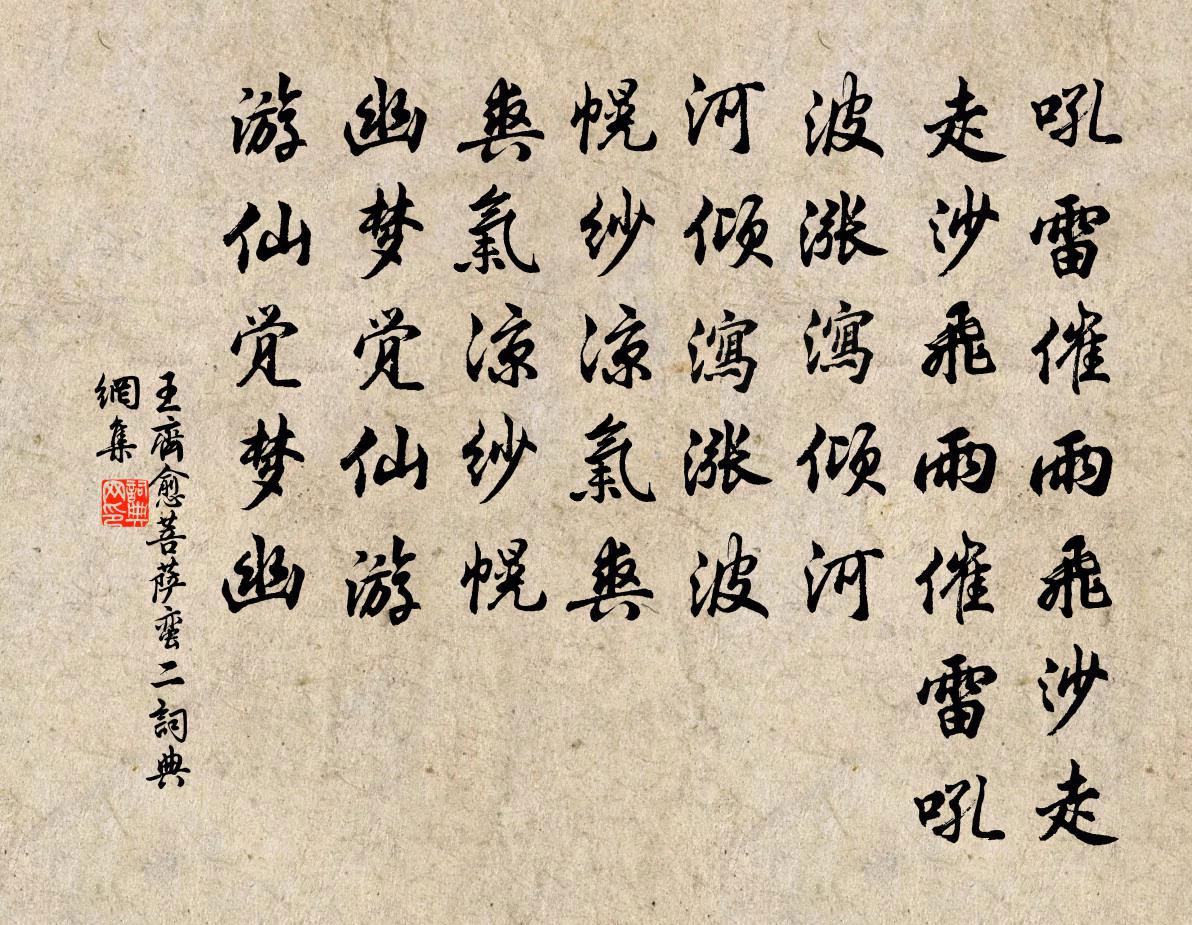 吼雷催雨飛沙走
走沙飛雨催雷吼
波漲瀉傾河
河傾瀉漲波
幌紗凉氣爽
爽氣凉紗幌
幽梦觉仙游
游仙觉梦幽
王齊愈菩萨蛮二詞典
網集
詞典网印